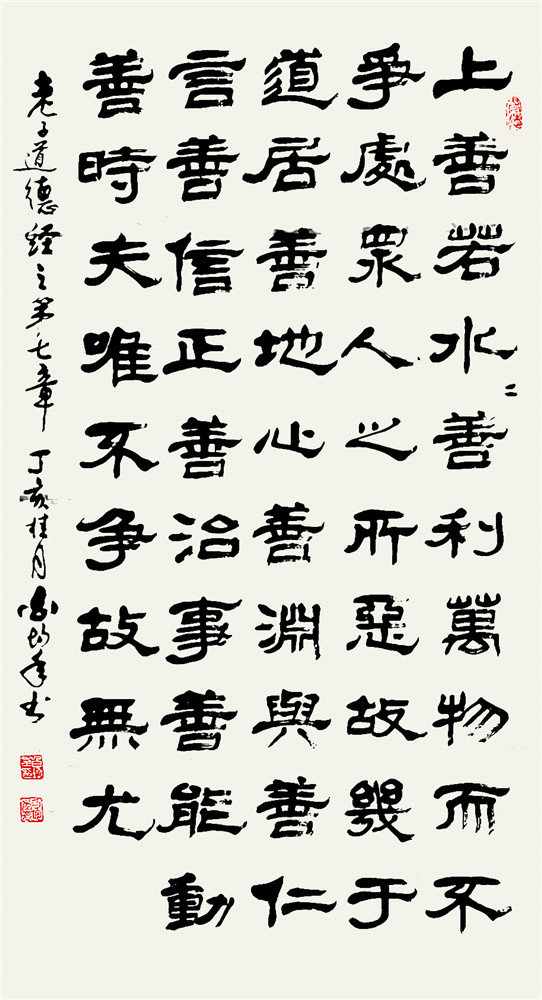 上善若水二善利萬物而不
爭處眾人之所惡故幾于
道居善地心善淵與善仁
言善信正善治事善能動
善時夫唯不爭故無尤
老子道德經之第七章 丁亥桂月 书